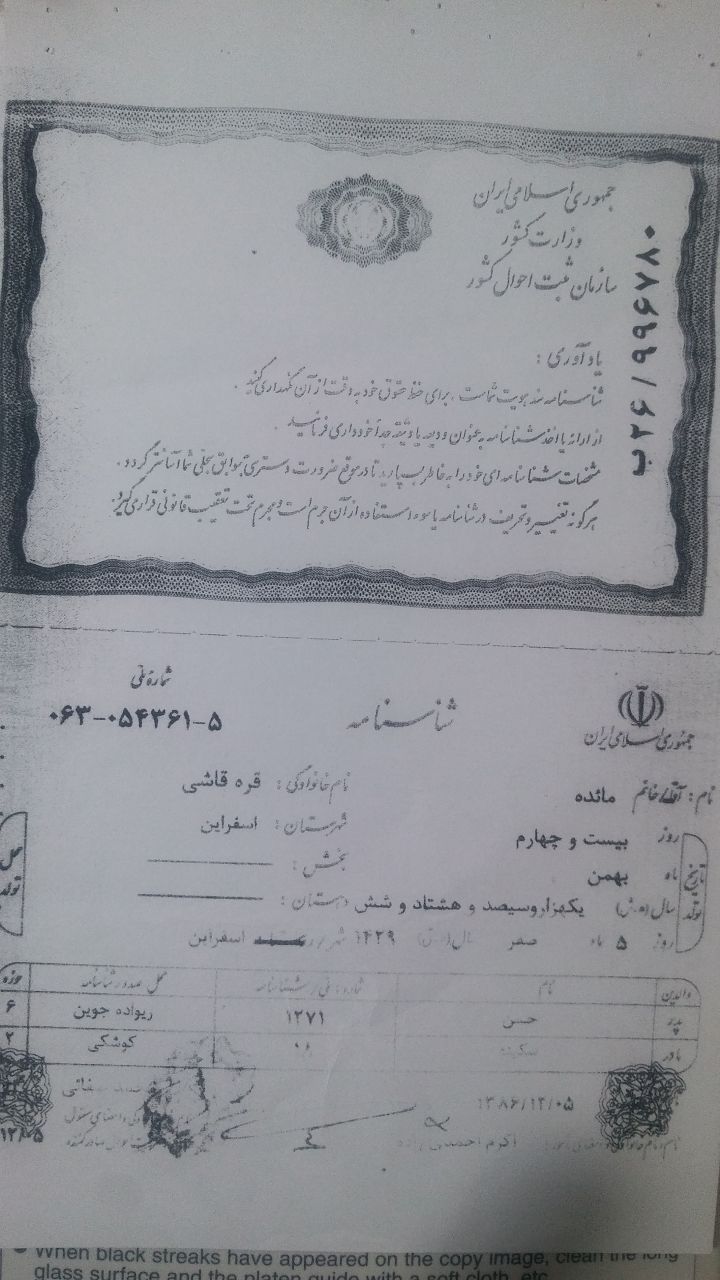 جمهوری اسلامی ایران
وزارت کشور
سازمان ثبت احوال کشور
ب۲۶/۹۹۶۷۸۰
یادآوری :
شناسنامه سند هویت شماست ، برای حفظ حقوق خود به دقت از آن نگهداری کنید .
از ارائه یا اخذ شناسنامه به عنوان ودیعه یا وثیقه جداً خودداری فرمائید .
مشخصات شناسنامه ای خود را به خاطر بسپارید تا در موقع ضرورت دسترسی به سوابق سجلی شما آسانتر گردد .
هرگونه تغییر و تحریف در شناسنامه یا سوء استفاده از آن جرم است و مجرم تحت تعقیب قانونی قرار می گیرد .
جمهوری اسلامی ایران
شناسنامه
شماره ملی
۰۶۳-۰۵۴۳۶۱-۵
نام : آقای/خانم مائده
نام خانوادگی : قره قاشی
تاریخ تولد
روز بیست و چهارم
شهرستان : اسفراین
ماه بهمن
بخش :
سال (ه.ش) یکهزاروسیصد و هشتاد و شش
دهستان :
روز ۵ ماه صفر سال (ه.ق) ۱۴۲۹ شهر اسفراین
محل تولد
والدین نام شماره ملی / شناسنامه محل صدور شناسنامه حوزه
پدر حسن ۱۲۷۱ ریواده جوین ۶
مادر سکینه کوشکی ۲
۱۳۸۶/۱۲/۰۵
اکرم احمدی زاده
When black streaks have appeared on the copy image, clean the long
glass surface and the platen guide with a soft cloth, etc.